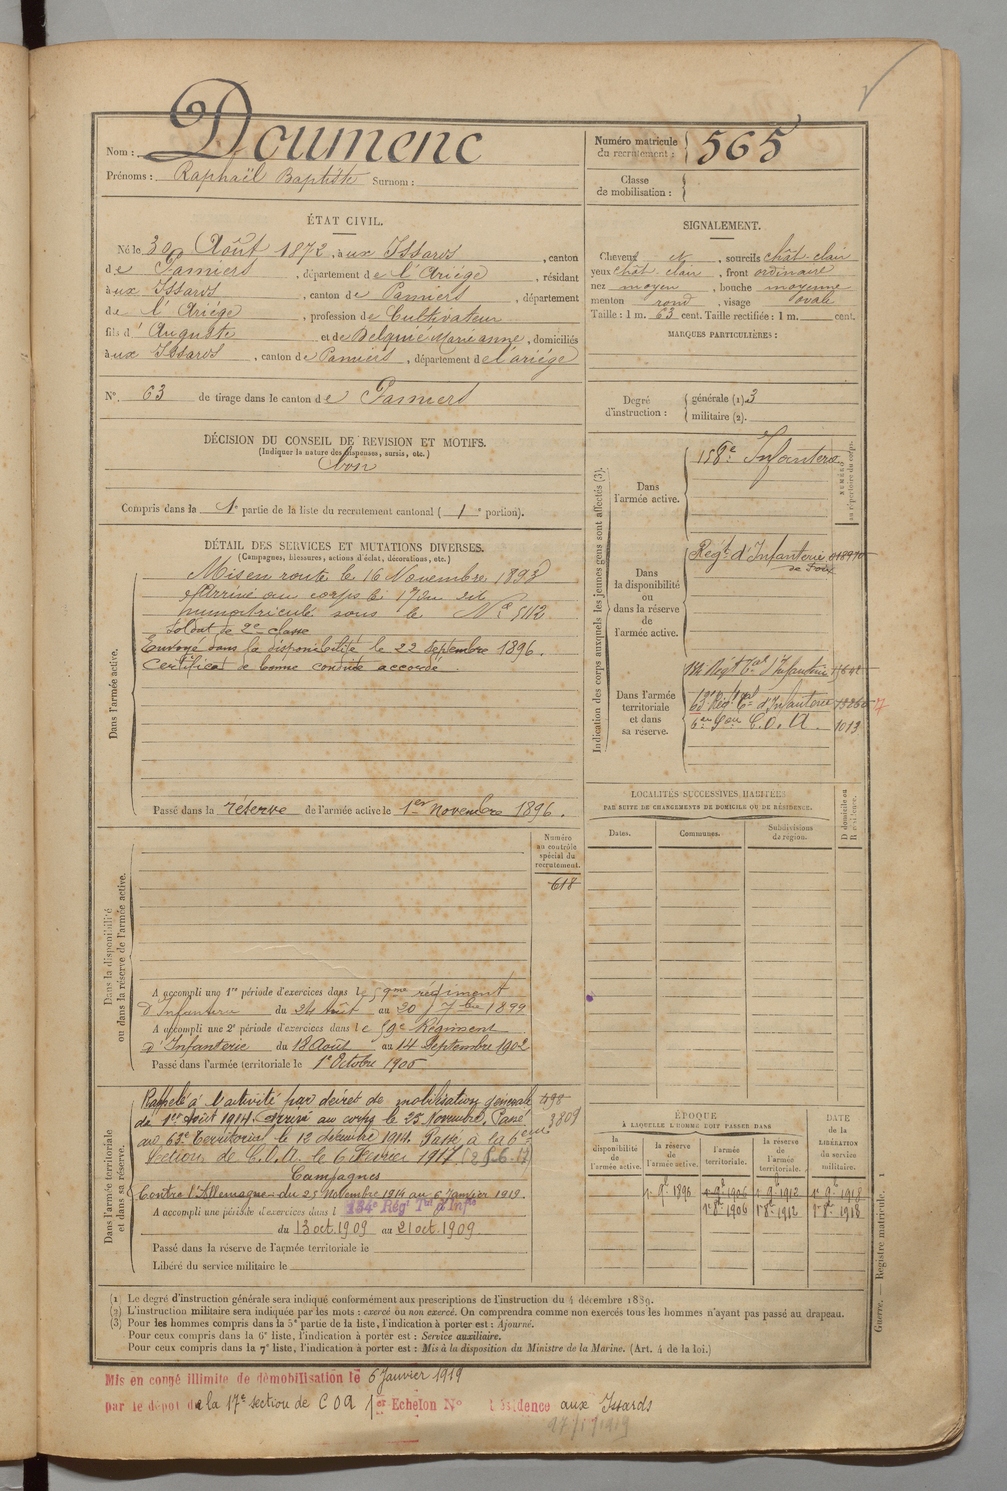 Nom : Doumenc
Prénoms : Raphaël Baptiste Surnom :
Numéro matricule du recrutement : 565
Classe de mobilisation :
ÉTAT CIVIL.
Né le 30 Août 1872, à aux Issards, canton
de Pamiers, département de l'Ariége, résidant
à aux Issards, canton de Pamiers, département
de l'Ariége, profession de Cultivateur
fils d'Auguste et de Delquié Marianne, domiciliés
à aux Issards, canton de Pamiers, département de l'ariége
N° 63 de tirage dans le canton de Pamiers
SIGNALEMENT.
Cheveux et, sourcils chât. clair
yeux chât. clair, front ordinaire
nez moyen, bouche moyenne
menton rond, visage ovale
Taille : 1 m. 63 cent. Taille rectifiée : 1 m. cent.
MARQUES PARTICULIÈRES :
Degré d'instruction : générale (1). 3
militaire (2).
DÉCISION DU CONSEIL DE REVISION ET MOTIFS.
(Indiquer la nature des dispenses, sursis, etc.)
bon
Compris dans la 1e partie de la liste du recrutement cantonal ( 1e portion).
DÉTAIL DES SERVICES ET MUTATIONS DIVERSES.
(Campagnes, blessures, actions d'éclat, décorations, etc.)
Dans l'armée active.
Mis en route le 16 Novembre 1893
Arrivé au corps le 17 du dit
immatriculé sous le N° 5112
Soldat de 2e classe
Envoyé dans la disponibilité le 22 septembre 1896.
Certificat de bonne conduite accordé
Passé dans la réserve de l'armée active le 1er Novembre 1896.
Indication des corps auxquels les jeunes gens sont affectés (3).
NUMÉRO au répertoire du corps.
Dans l'armée active.
158e Infanterie
Dans la disponibilité ou dans la réserve de l'armée active.
Régt d'Infanterie
de Foix
Dans l'armée territoriale et dans sa réserve.
134 Régt Tal d'Infanterie
63 Rég. d'Infanterie
6eme Son C.O.A. 1013
LOCALITÉS SUCCESSIVES HABITÉES
PAR SUITE DE CHANGEMENTS DE DOMICILE OU DE RÉSIDENCE.
Dates.
Communes.
Subdivisions de région.
D domicile ou R résidence.
Dans la disponibilité ou dans la réserve de l'armée active.
Numéro au contrôle spécial du recrutement.
618
A accompli une 1re période d'exercices dans le 59me régiment
d'Infanterie du 24 Août au 20 7bre 1899
A accompli une 2e période d'exercices dans le 59e Régiment
d'Infanterie du 18 Août au 14 Septembre 1902
Passé dans l'armée territoriale le 1er Octobre 1906
Dans l'armée territoriale et dans sa réserve.
Rappelé à l'activité par décret de mobilisation générale
de 1er Août 1914. Arrivé au corps le 25 Novembre. Passé
au 63e Territorial le 12 décembre 1914. Passé à la 6eme
Section de C.O.A. le 6 Février 1917. (25.6.17)
3809
Campagnes
Contre l'Allemagne du 25 Novembre 1914 au 6 Janvier 1919.
A accompli une période d'exercices dans l 134e Régt Tal d'Infie
du 13 oct. 1909 au 21 oct. 1909
Passé dans la réserve de l'armée territoriale le
Libéré du service militaire le
ÉPOQUE À LAQUELLE L'HOMME DOIT PASSER DANS
la disponibilité de l'armée active.
la réserve de l'armée active.
l'armée territoriale.
la réserve de l'armée territoriale.
DATE de la LIBÉRATION du service militaire.
1r 9b 1896 1r 9b 1906 1r 9b 1912 1r 9b 1918
1r 8b 1906 1r 8b 1912 1r 8b 1918
(1) Le degré d'instruction générale sera indiqué conformément aux prescriptions de l'instruction du 4 décembre 1889.
(2) L'instruction militaire sera indiquée par les mots : exercé ou non exercé. On comprendra comme non exercés tous les hommes n'ayant pas passé au drapeau.
(3) Pour les hommes compris dans la 5e partie de la liste, l'indication à porter est : Ajourné.
Pour ceux compris dans la 6e liste, l'indication à porter est : Service auxiliaire.
Pour ceux compris dans la 7e liste, l'indication à porter est : Mis à la disposition du Ministre de la Marine. (Art. 4 de la loi.)
Guerre. — Registre matricule. 1
Mis en congé illimité de démobilisation le 6 Janvier 1919
par le dépôt de la 17e section de COA 1er Echelon N° Résidence aux Issards